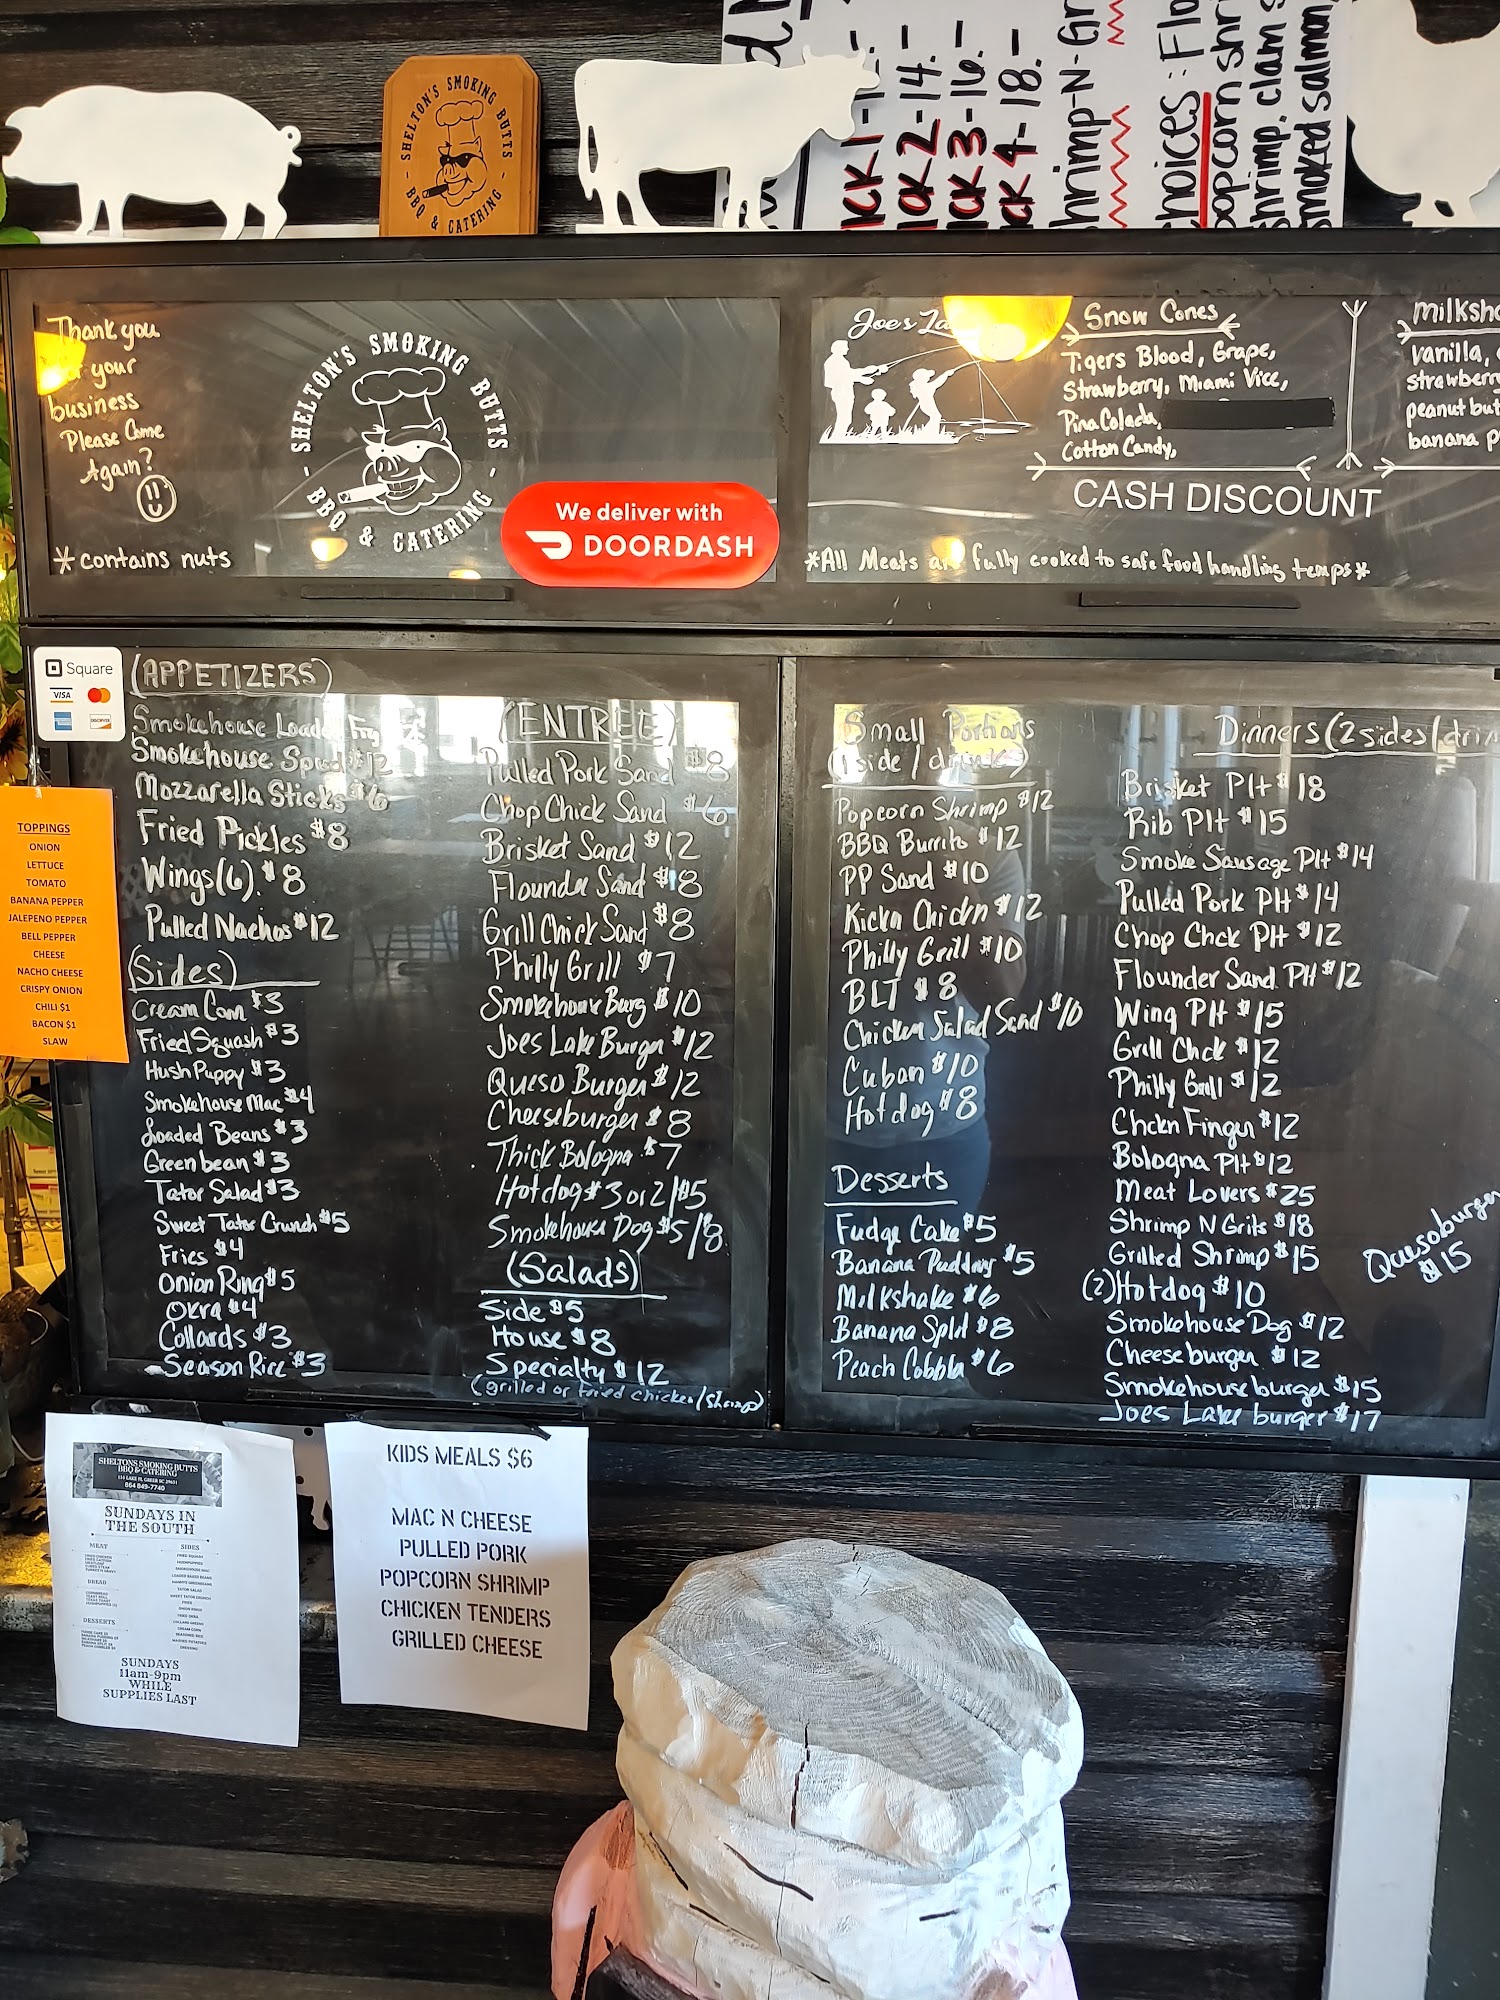 SHELTON'S SMOKING BUTTS
BBQ & CATERING
2-14.-
3-16.-
4-18.-
shrimp-N-Gr
popcorn shr
shrimp, clam s
smoked salmon,
Thank you
your
business
Please Come
Again?
*contains nuts
SHELTON'S SMOKING BUTTS
BBQ & CATERING
We deliver with
DOORDASH
Joe's La
Snow Cones
Tigers Blood, Grape,
Strawberry, Miami Vice,
Pina Colada,
Cotton Candy,
CASH DISCOUNT
milksha
vanilla,
strawberry
peanut but
banana p
*All Meats are fully cooked to safe food handling temps*
Square
VISA
DISCOVER
TOPPINGS
ONION
LETTUCE
TOMATO
BANANA PEPPER
JALEPENO PEPPER
BELL PEPPER
CHEESE
NACHO CHEESE
CRISPY ONION
CHILI $1
BACON $1
SLAW
(APPETIZERS)
Smokehouse Loaded Fry
Smokehouse Spud $12
Mozzarella Sticks $6
Fried Pickles $8
Wings(6). $8
Pulled Nachos $12
(Sides)
Cream Corn $3
Fried Squash $3
Hush Puppy $3
Smokehouse Mac $4
Loaded Beans $3
Green bean $3
Tator Salad $3
Sweet Tator Crunch $5
Fries $4
Onion Ring $5
Okra $4
Collards $3
Season Rice $3
(ENTREE)
Pulled Pork Sand $8
Chop Chick Sand $6
Brisket Sand $12
Flounder Sand $8
Grill Chick Sand $8
Philly Grill $7
Smokehouse Burg $10
Joes Lake Burger $12
Queso Burger $12
Cheeseburger $8
Thick Bologna $7
Hotdog $3 or 2/$5
Smokehouse Dog $5/$8
(Salads)
Side $5
House $8
Specialty $12
(grilled or fried chicken/shrimp)
Small Portions
(1 side/drink)
Popcorn Shrimp $12
BBQ Burrito $12
PP Sand $10
Kickn Chickn $12
Philly Grill $10
BLT $8
Chicken Salad Sand $10
Cuban $10
Hotdog $8
Desserts
Fudge Cake $5
Banana Pudding $5
Milkshake $6
Banana Split $8
Peach Cobbler $6
Dinners (2 sides/drin
Brisket Plt $18
Rib Plt $15
Smoke Sausage Plt $14
Pulled Pork Plt $14
Chop Chck Plt $12
Flounder Sand Plt $12
Wing Plt $15
Grill Chck $12
Philly Grill $12
Chckn Finger $12
Bologna Plt $12
Meat Lovers $25
Shrimp N Grits $18
Grilled Shrimp $15
(2) Hotdog $10
Smokehouse Dog $12
Cheeseburger $12
Smokehouse burger $15
Joes Lake burger $17
Quesoburger
$15
SHELTONS SMOKING BUTTS
BBQ & CATERING
864 849-7740
SUNDAYS IN
THE SOUTH
MEAT
BREAD
DESSERTS
SIDES
SUNDAYS
11am-9pm
WHILE
SUPPLIES LAST
KIDS MEALS $6
MAC N CHEESE
PULLED PORK
POPCORN SHRIMP
CHICKEN TENDERS
GRILLED CHEESE